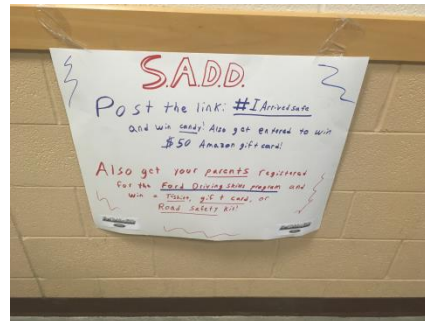 S.A.D.D.
Post the link: #IArrivedsafe
and win candy! Also get entered to win
$50 Amazon gift card!
Also get your parents registered
for the Ford Driving Skills program and
win a T-Shirt, gift card, or
Road Safety Kit!